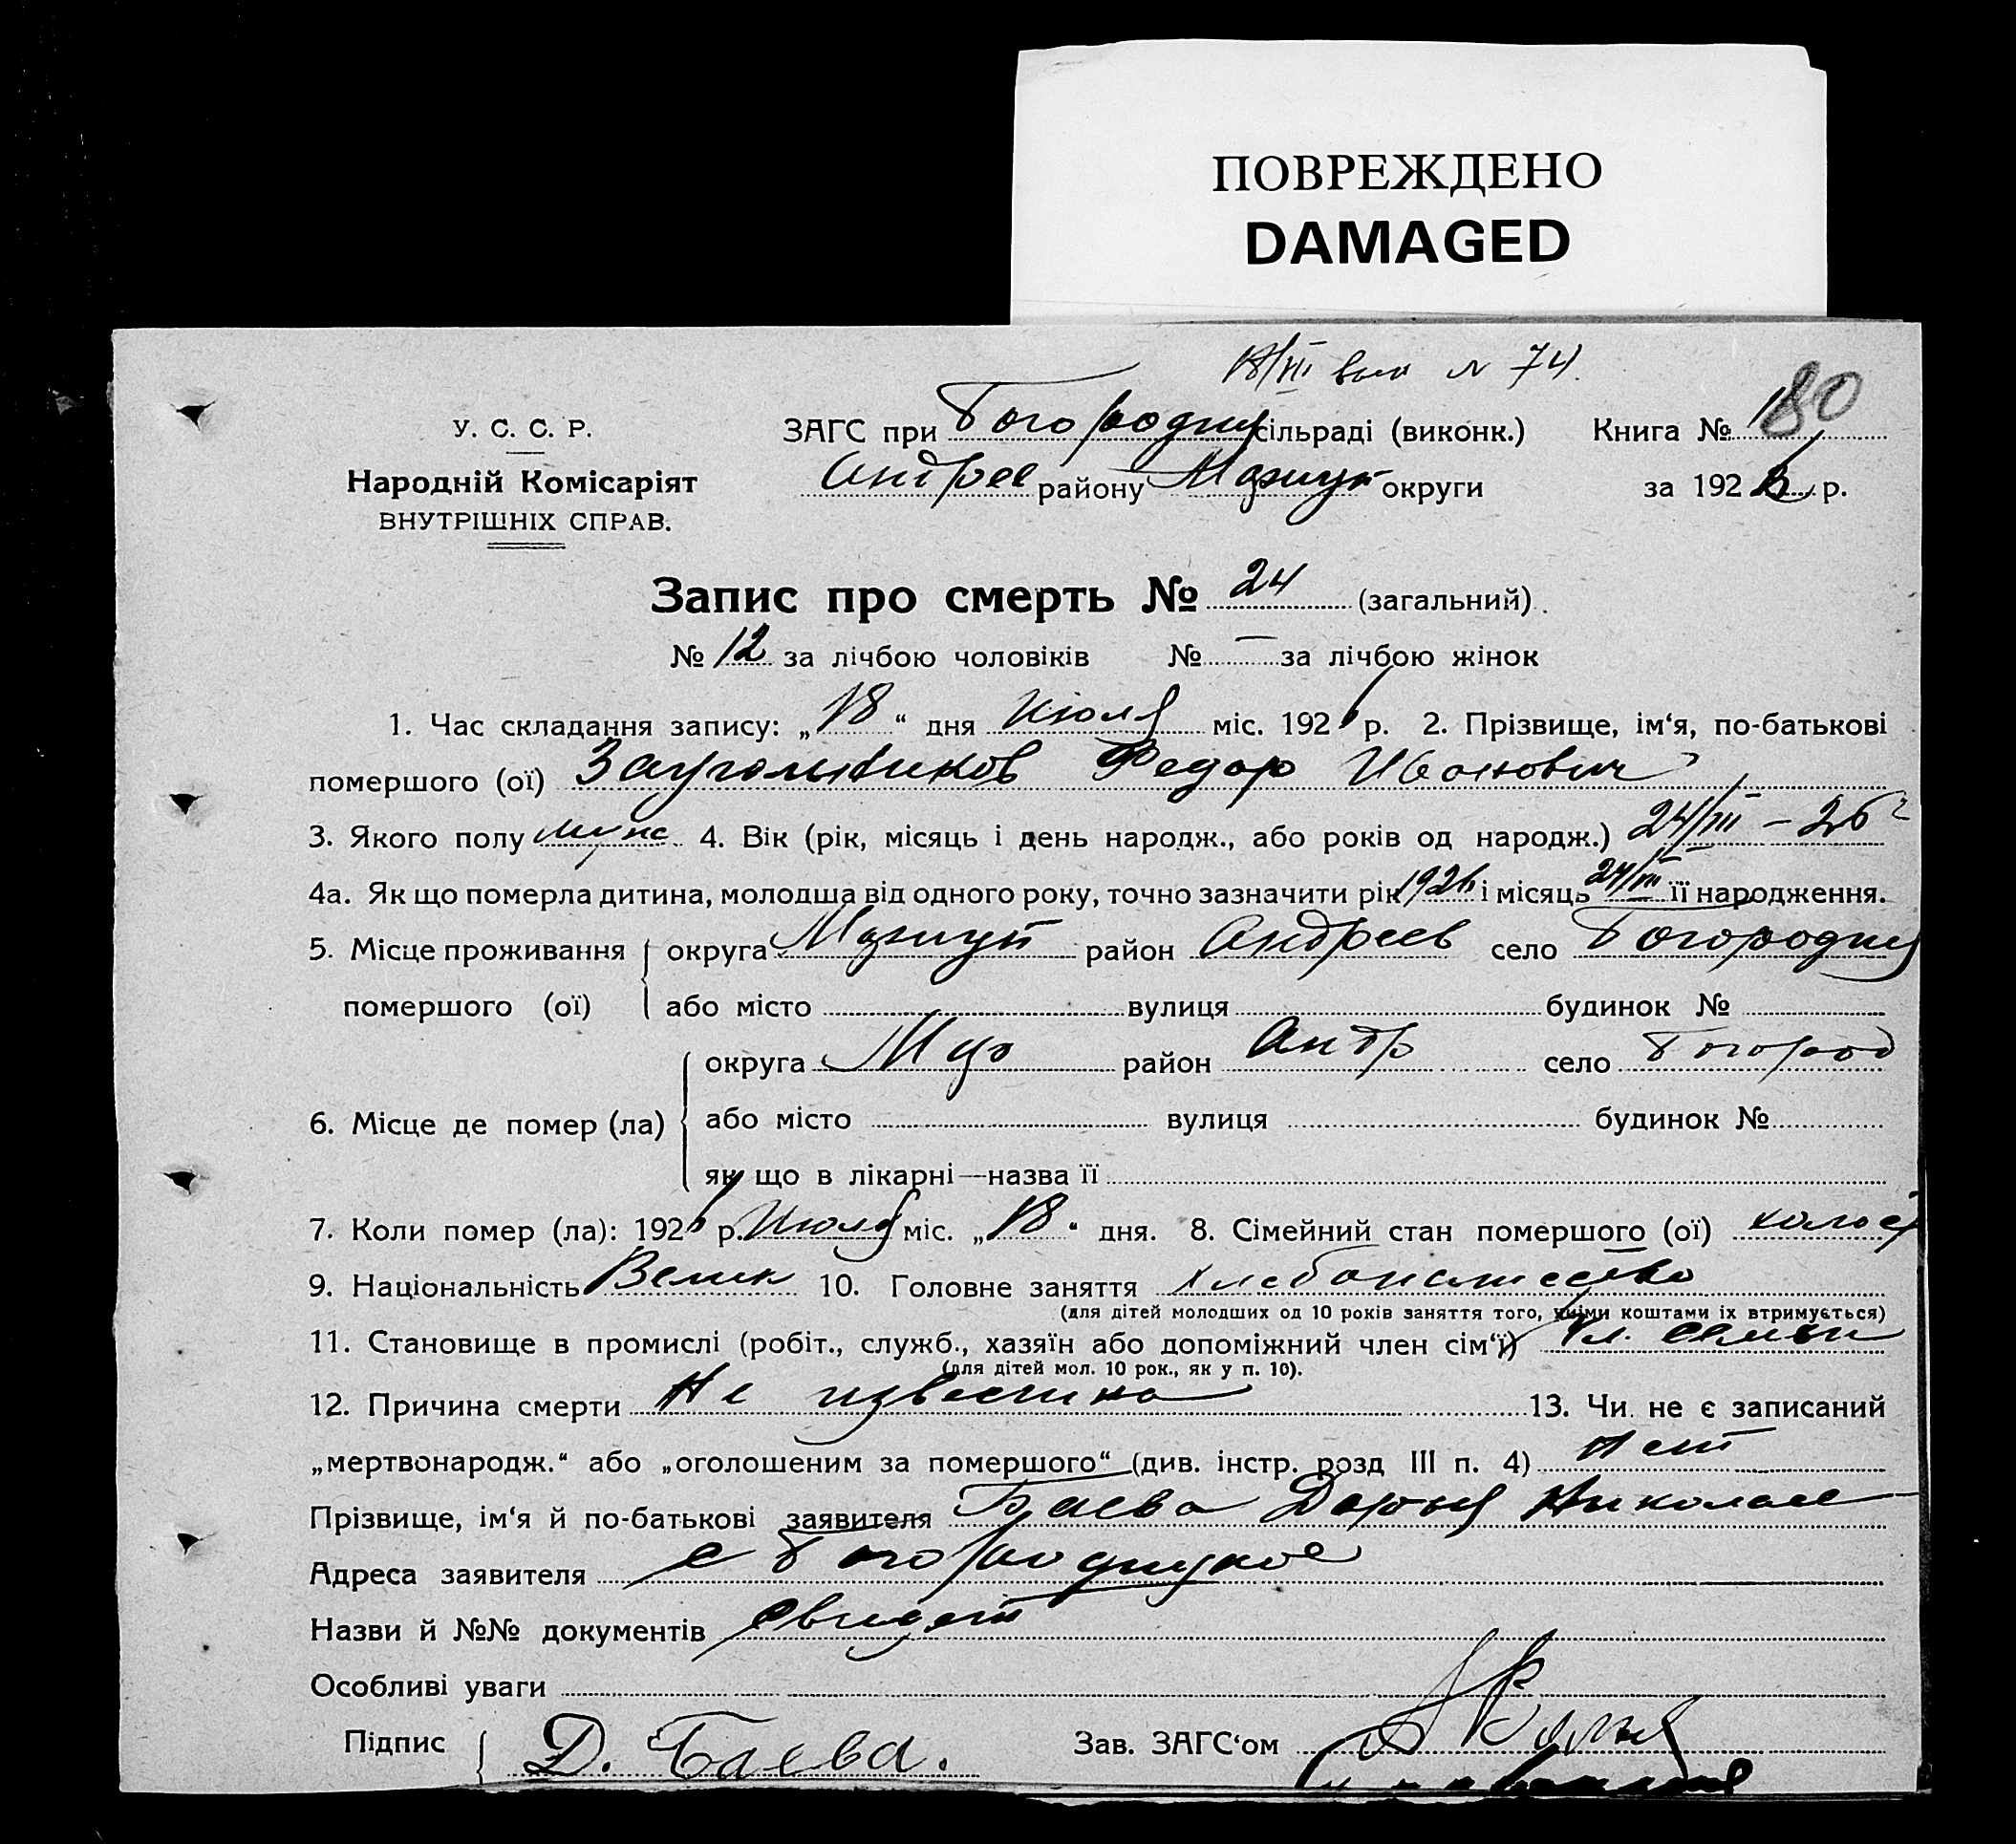 ПОВРЕЖДЕНО
DAMAGED
18/VII № 74.
У. С. С. Р.
ЗАГС при Богородиц сільраді (виконк.) Книга № 180
Народній Комісаріят
ВНУТРІШНІХ СПРАВ.
Андрее району округи за 1926 р.
Запис про смерть № 24 (загальний).
№ 12 за лічбою чоловіків № — за лічбою жінок
1. Час складання запису: „18“ дня Июля міс. 1926 р. 2. Прізвище, ім‘я, по-батькові
помершого (ої) Заугольников Федор Иванович
3. Якого полу муж. 4. Вік (рік, місяць і день народж., або років од народж.) 24/III – 26 г
4а. Як що померла дитина, молодша від одного року, точно зазначити рік 1926 і місяць 24/III її народження.
5. Місце проживання округа район Андреев село Богородиц
помершого (ої) або місто вулиця будинок №
округа район Андр село Богород
6. Місце де помер (ла) або місто вулиця будинок №
як що в лікарні—назва її
7. Коли помер (ла): 1926 р. Июля міс. „18“ дня. 8. Сімейний стан помершого (ої) холост
9. Національність Велик 10. Головне заняття хлебопашество
(для дітей молодших од 10 років заняття того, чиїми коштами їх втримується)
11. Становище в промислі (робіт., служб., хазяїн або допоміжний член сім‘ї) чл. семьи
(для дітей мол. 10 рок., як у п. 10).
12. Причина смерти Не известна 13. Чи не є записаний
„мертвонародж.“ або „оголошеним за помершого“ (див. інстр. розд III п. 4) Нет
Прізвище, ім‘я й по-батькові заявителя Баева Дарья Николаев
Адреса заявителя с Богородицкое
Назви й №№ документів Свидет
Особливі уваги
Підпис Д. Баева. Зав. ЗАГС‘ом